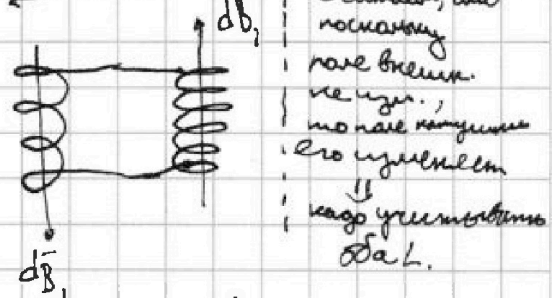 dB₁
поскольку
поле внешн.
не изм.,
то поле катушки
его изменяет
⇓
надо учитывать
оба L.
dB̄₁